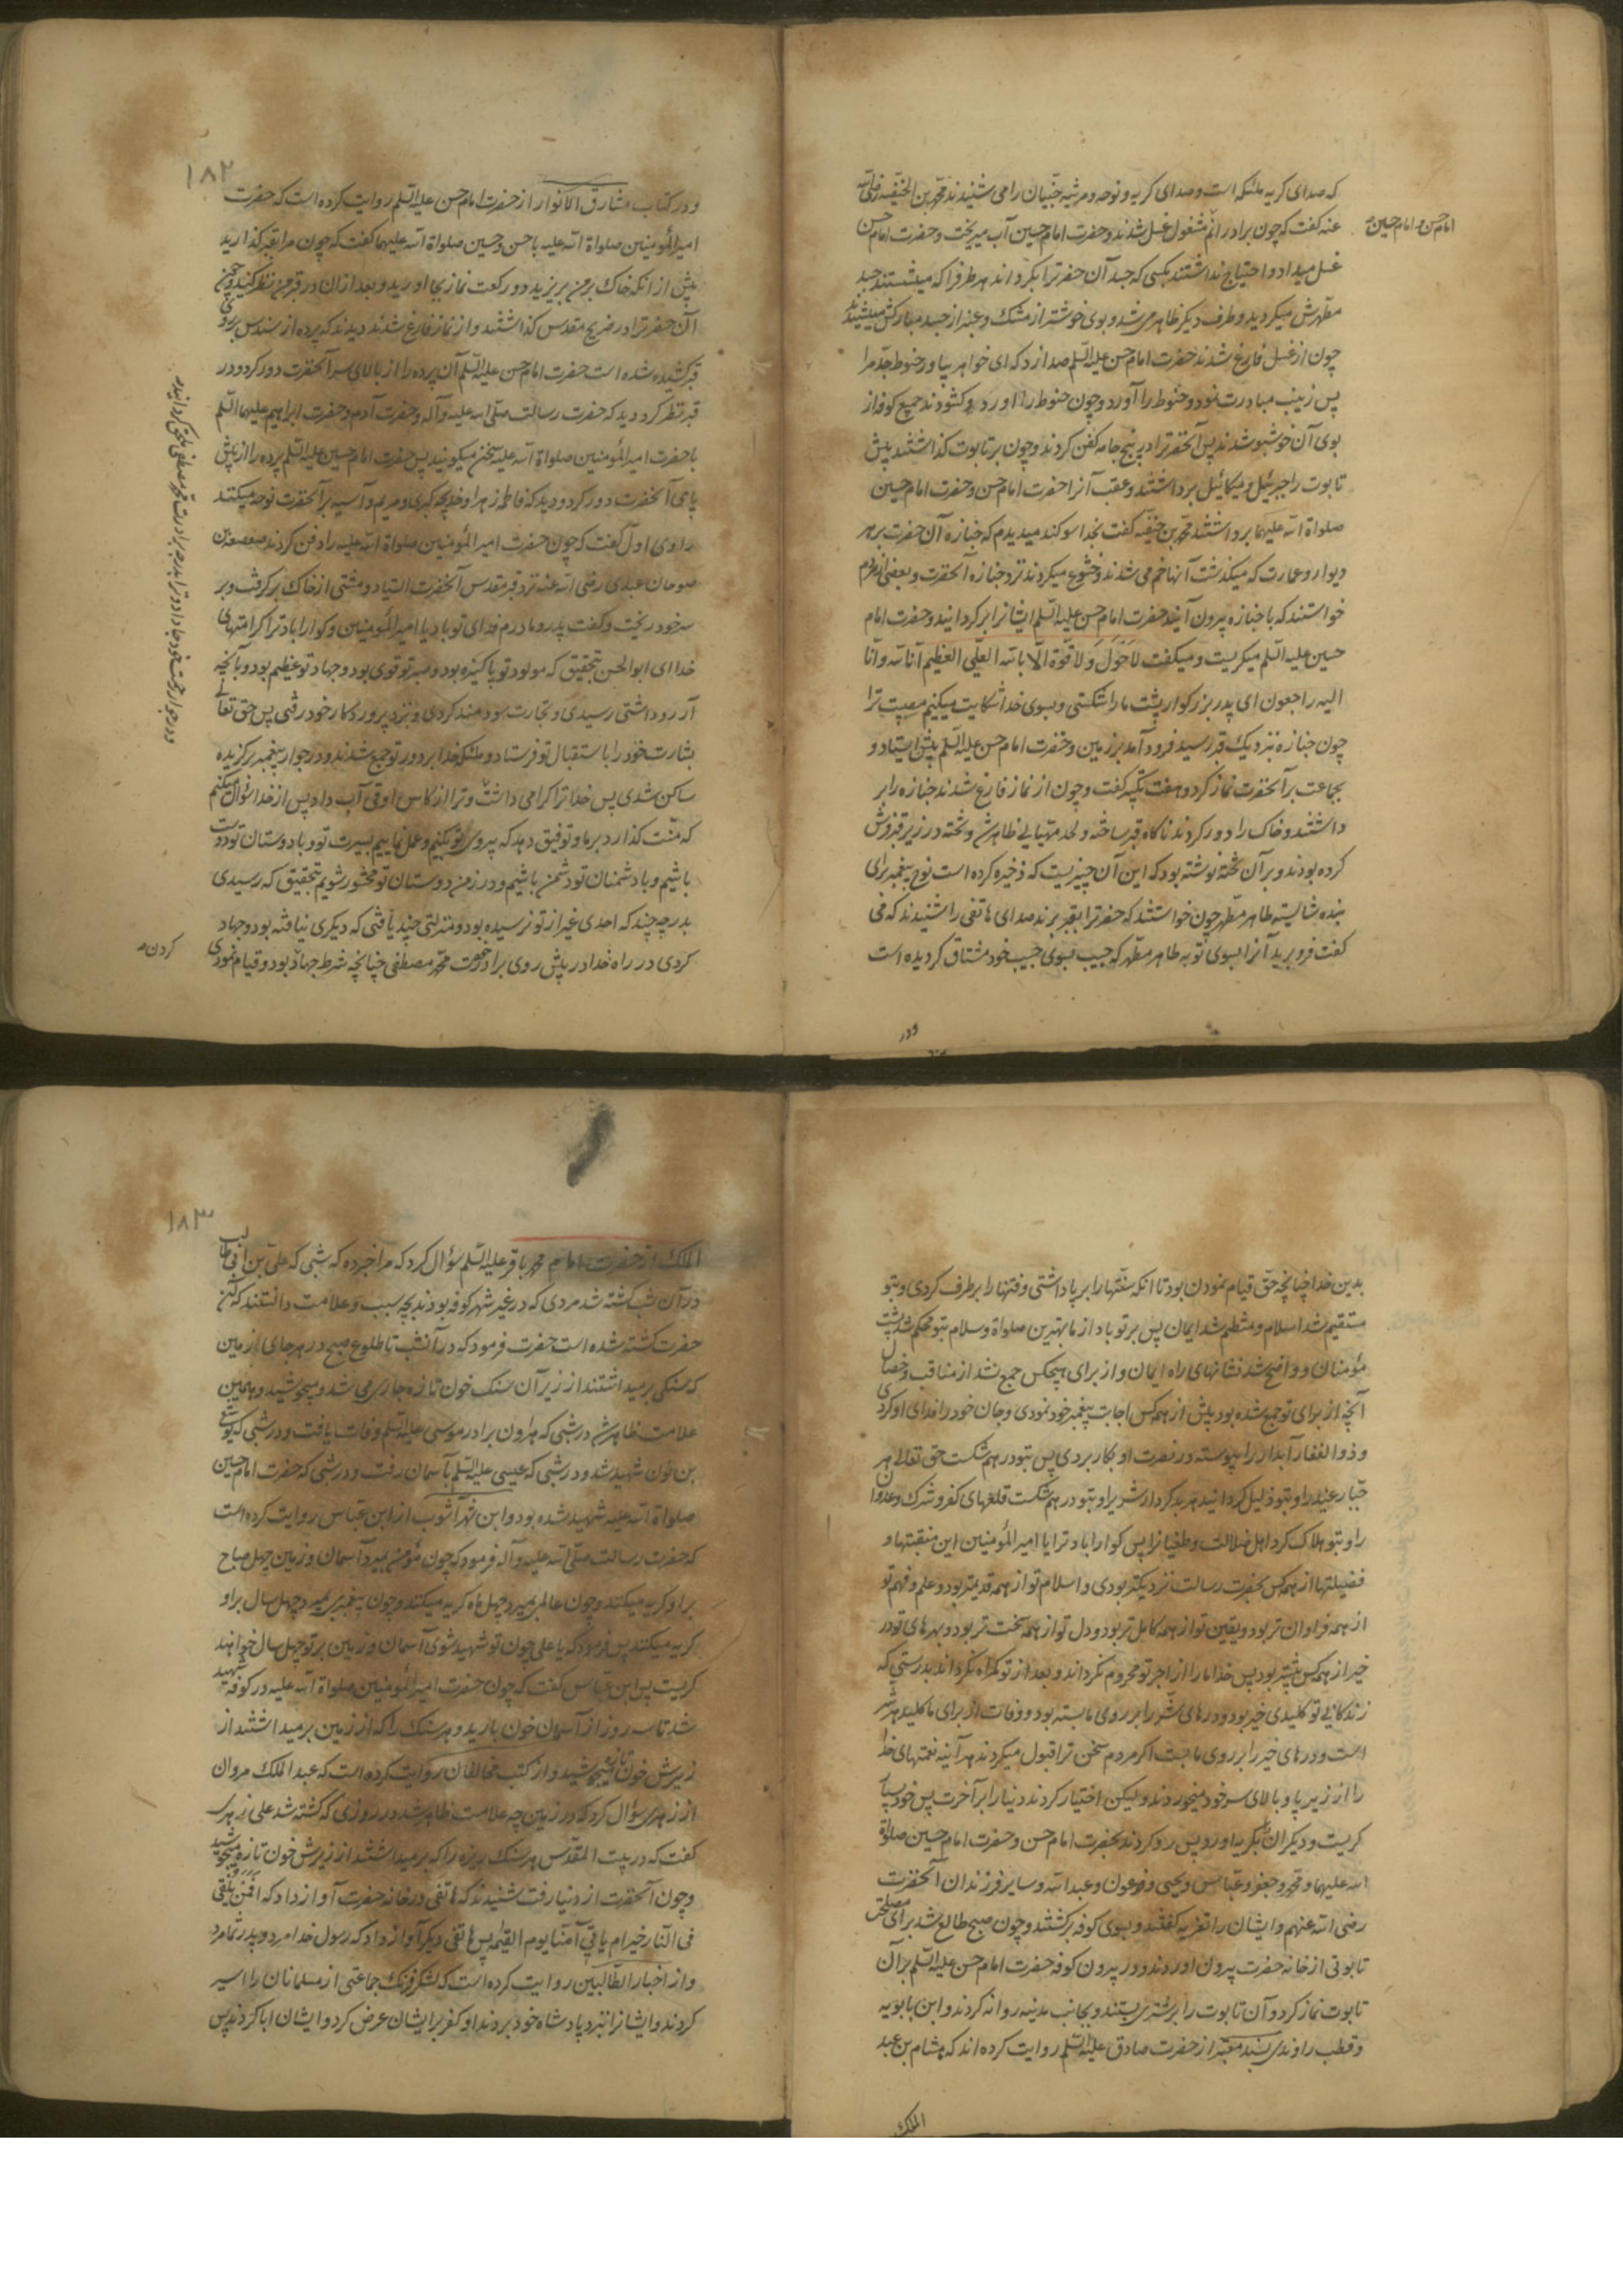 که صدای گریه ملئکه است و صدای گریه و نوحه و مرثیه جنیان را می شنیدند محمد بن الحنفیه رضی الله
عنه گفت که چون برادرانم مشغول غسل شدند و حضرت امام حسین آب میریخت و حضرت امام حسن
امام حسن و امام حسین
غسل میداد و احتیاج نداشتند بکسی که جسد آن حضرترا بگرداند هر طرفرا که میشستند جسد
مطهرش میگردید و طرف دیگر ظاهر می شد و بوی خوشتر از مشک و عنبر از جسد مبارکش میشنیدند
چون از غسل فارغ شدند حضرت امام حسن علیه السلم صدا زد که ای خواهر بیاور حنوط جدم را
پس زینب مبادرت نمود و حنوط را آورد و چون حنوط را آورد و گشودند جمیع کوفه از
بوی آن خوشبو شدند پس آنحضرترا در پنج جامه کفن کردند و چون بر تابوت گذاشتند پیش
تابوت را جبرئیل و میکائیل برداشتند و عقب آنرا حضرت امام حسن و حضرت امام حسین
صلواة الله علیهما برداشتند محمد بن حنفیه گفت بخدا سوگند میدیدم که جنازه آن حضرت بر هر
دیوار و عمارت که میگذشت آنها خم می شدند و خشوع میکردند نزد جنازه آنحضرت و بعضی از مردم
خواستند که با جنازه بیرون آیند حضرت امام حسن علیه السلم ایشانرا برگردانید و حضرت امام
حسین علیه السلم میگریست و میگفت لا حول و لا قوة الا بالله العلی العظیم انا لله و انا
الیه راجعون ای پدر بزرگوار پشت ما را شکستی و بسوی خدا شکایت میکنیم مصیبت ترا
چون جنازه نزدیک قبر رسید فرود آمد بر زمین و حضرت امام حسن علیه السلم پیش ایستاد و
بجماعت بر آنحضرت نماز کرد و هفت تکبیر گفت و چون از نماز فارغ شدند جنازه را بر
داشتند و خاک را دور کردند ناگاه قبر ساخته و لحد مهیایی ظاهر شد و تخته در زیر قبر فرش
کرده بودند و بر آن تخته نوشته بود که این آن چیزیست که ذخیره کرده است نوح پیغمبر برای
بنده شایسته طاهر مطهر چون خواستند که حضرترا بقبر برند صدای هاتفی را شنیدند که می
گفت فرو برید آنرا بسوی تربه طاهر مطهر که حبیب بسوی حبیب خود مشتاق گردیده است
ودر
۱۸۲
و در کتاب مشارق الانوار از حضرت امام حسن علیه السلم روایت کرده است که حضرت
امیرالمؤمنین صلواة الله علیه با حسن و حسین صلواة الله علیهما گفت که چون مرا بقبر گذارید
پیش از انکه خاک بر من بریزید دو رکعت نماز بجا اورید و بعد ازان در قبر من نظر کنید چون
آن حضرترا در ضریح مقدس گذاشتند و از نماز فارغ شدند دیدند که پرده از سندس بر روی
قبر کشیده شده است حضرت امام حسن علیه السلم آن پرده را از بالای سر آنحضرت دور کرد و در
قبر نظر کرد دید که حضرت رسالت صلی الله علیه و آله و حضرت آدم و حضرت ابراهیم علیهما السلم
با حضرت امیرالمؤمنین صلواة الله علیه سخن میگویند پس حضرت امام حسین علیه السلم پرده را از پیش
پای آنحضرت دور کرد و دید که فاطمه زهرا و خدیجه کبری و مریم و آسیه بر آنحضرت نوحه میکنند
راوی اول گفت که چون حضرت امیرالمؤمنین صلواة الله علیه را دفن کردند صعصعة بن
صوحان عبدی رضی الله عنه نزد قبر مقدس آنحضرت ایستاد و مشتی از خاک برگرفت و بر
سر خود ریخت و گفت پدر و مادرم فدای تو باد یا امیرالمؤمنین و گوارا باد ترا کرامتهای
خدا ای ابوالحسن بتحقیق که مولود تو پاکیزه بود و صبر تو قوی بود و جهاد تو عظیم بود و بآنچه
آرزو داشتی رسیدی و تجارت سودمند کردی و بنزد پروردگار خود رفتی پس حق تعالی
بشارت خود را باستقبال تو فرستاد و ملئکه خدا بر دور تو جمع شدند و در جوار پیغمبر برگزیده
ساکن شدی پس خدا ترا گرامی داشت و ترا از کاس اوفی آب داد پس از خدا سؤال میکنم
که منت گذارد بر ما و توفیق دهد که پیروی تو بکنیم و عمل نماییم بسیرت تو و با دوستان تو دوست
باشیم و با دشمنان تو دشمن باشیم و در زمره دوستان تو محشور شویم بتحقیق که رسیدی
بدرجه چند که احدی غیر از تو نرسیده بود و منزلتی چند یافتی که دیگری نیافته بود و جهاد
کردی در راه خدا در پیش روی برادرت محمد مصطفی چنانچه شرط جهاد بود و قیام نمودی
کردن
بدین خدا چنانچه حق قیام نمودن بود تا انکه سنتها را برپا داشتی و فتنها را برطرف کردی و بتو
مستقیم شد اسلام و منتظم شد ایمان پس بر تو باد از ما بهترین صلواة و سلام بتو محکم شد پشت
مؤمنان و واضح شد نشانهای راه ایمان و از برای هیچکس جمع نشد از مناقب و خصال
آنچه از برای تو جمع شده بود پیش از همه کس اجابت پیغمبر خود نمودی و جان خود را فدای او کردی
و ذوالفقار آبدار را پیوسته در نصرت او بکار بردی پس بتو در هم شکست حق تعالی هر
جبار عنید را و بتو ذلیل گردانید هر بدکردار شریر را و بتو در هم شکست قلعهای کفر و شرک و عدوان
را و بتو هلاک کرد اهل ضلالت و طغیانرا پس گوارا باد ترا یا امیرالمؤمنین این منقبتها و
فضیلتها از همه کس بحضرت رسالت نزدیکتر بودی و اسلام تو از همه قدیمتر بود و علم و فهم تو
از همه فراوان تر بود و یقین تو از همه کامل تر بود و دل تو از همه سخت تر بود و بهرهای تو در
خیر از همه کس بیشتر بود پس خدا ما را از اجر تو محروم نگرداند و بعد از تو گمراه نگرداند بدرستی که
زندگانی تو کلیدی خیر بود و درهای شر را بر روی ما بسته بود و وفات تو از برای ما کلید هر شر
است و درهای خیر را بر روی ما بست اگر مردم سخن ترا قبول میکردند هر آینه نعمتهای خدا
را از زیر پا و بالای سر خود میخوردند و لیکن اختیار کردند دنیا را بر آخرت پس خود بسیار
گریست و دیگران را بگریه اورد پس رو کردند بحضرت امام حسن و حضرت امام حسین صلواة
الله علیهما و محمد و جعفر و عباس و یحیی و عون و عبدالله و سایر فرزندان آنحضرت
رضی الله عنهم و ایشان را تعزیه گفتند و بسوی کوفه برگشتند و چون صبح طالع شد برای مصلحتی
تابوتی از خانه حضرت بیرون اوردند و در بیرون کوفه حضرت امام حسن علیه السلم بر آن
تابوت نماز کرد و آن تابوت را بر شتری بستند و بجانب مدینه روانه کردند و ابن بابویه
و قطب راوندی بسند معتبر از حضرت صادق علیه السلم روایت کرده اند که هشام بن عبد
الملک
۱۸۳
الملک از حضرت امام محمد باقر علیه السلم سؤال کرد که مرا خبر ده که شبی که علی بن ابی طالب
در آن شب کشته شد مردی که در غیر شهر کوفه بودند بچه سبب و علامت دانستند که آن
حضرت کشته شده است حضرت فرمود که در آنشب تا طلوع صبح در هر جای از زمین
که سنگی برمیداشتند از زیر آن سنگ خون تازه جاری می شد و میجوشید و همچنین
علامت ظاهر شد در شبی که هارون برادر موسی علیه السلم وفات یافت و در شبی که یوشع
بن نون شهید شد و در شبی که عیسی علیه السلم بآسمان رفت و در شبی که حضرت امام حسین
صلواة الله علیه شهید شده بود و ابن شهرآشوب از ابن عباس روایت کرده است
که حضرت رسالت صلی الله علیه و آله فرمود که چون مؤمنی بمیرد آسمان و زمین چهل صباح
بر او گریه میکنند و چون عالمی بمیرد چهل ماه گریه میکنند و چون پیغمبری بمیرد چهل سال بر او
گریه میکنند پس فرمود که یا علی چون تو شهید شوی آسمان و زمین بر تو چهل سال خواهند
گریست پس ابن عباس گفت که چون حضرت امیرالمؤمنین صلواة الله علیه در کوفه شهید
شد تا سه روز از آسمان خون بارید و هر سنگ را که از زمین برمیداشتند از
زیرش خون تازه میجوشید و از کتب مخالفان روایت کرده است که عبدالملک مروان
از زهری سؤال کرد که در زمین چه علامت ظاهر شد در روزی که کشته شد علی زهری
گفت که در بیت المقدس هر سنگ ریزه را که برمیداشتند از زیرش خون تازه میجوشید
و چون آنحضرت از دنیا رفت شنیدند که هاتفی در خانه حضرت آواز داد که افمن یلقی
فی النار خیر ام یاتی آمنا یوم القیمه پس هاتفی دیگر آواز داد که رسول خدا مرد و پدر شما مرد
و از اخبار الطالبین روایت کرده است که لشکر فرنگ جماعتی از مسلمانان را اسیر
کردند و ایشانرا بنزد پادشاه خود بردند او کفر بر ایشان عرض کرد و ایشان ابا کردند پس